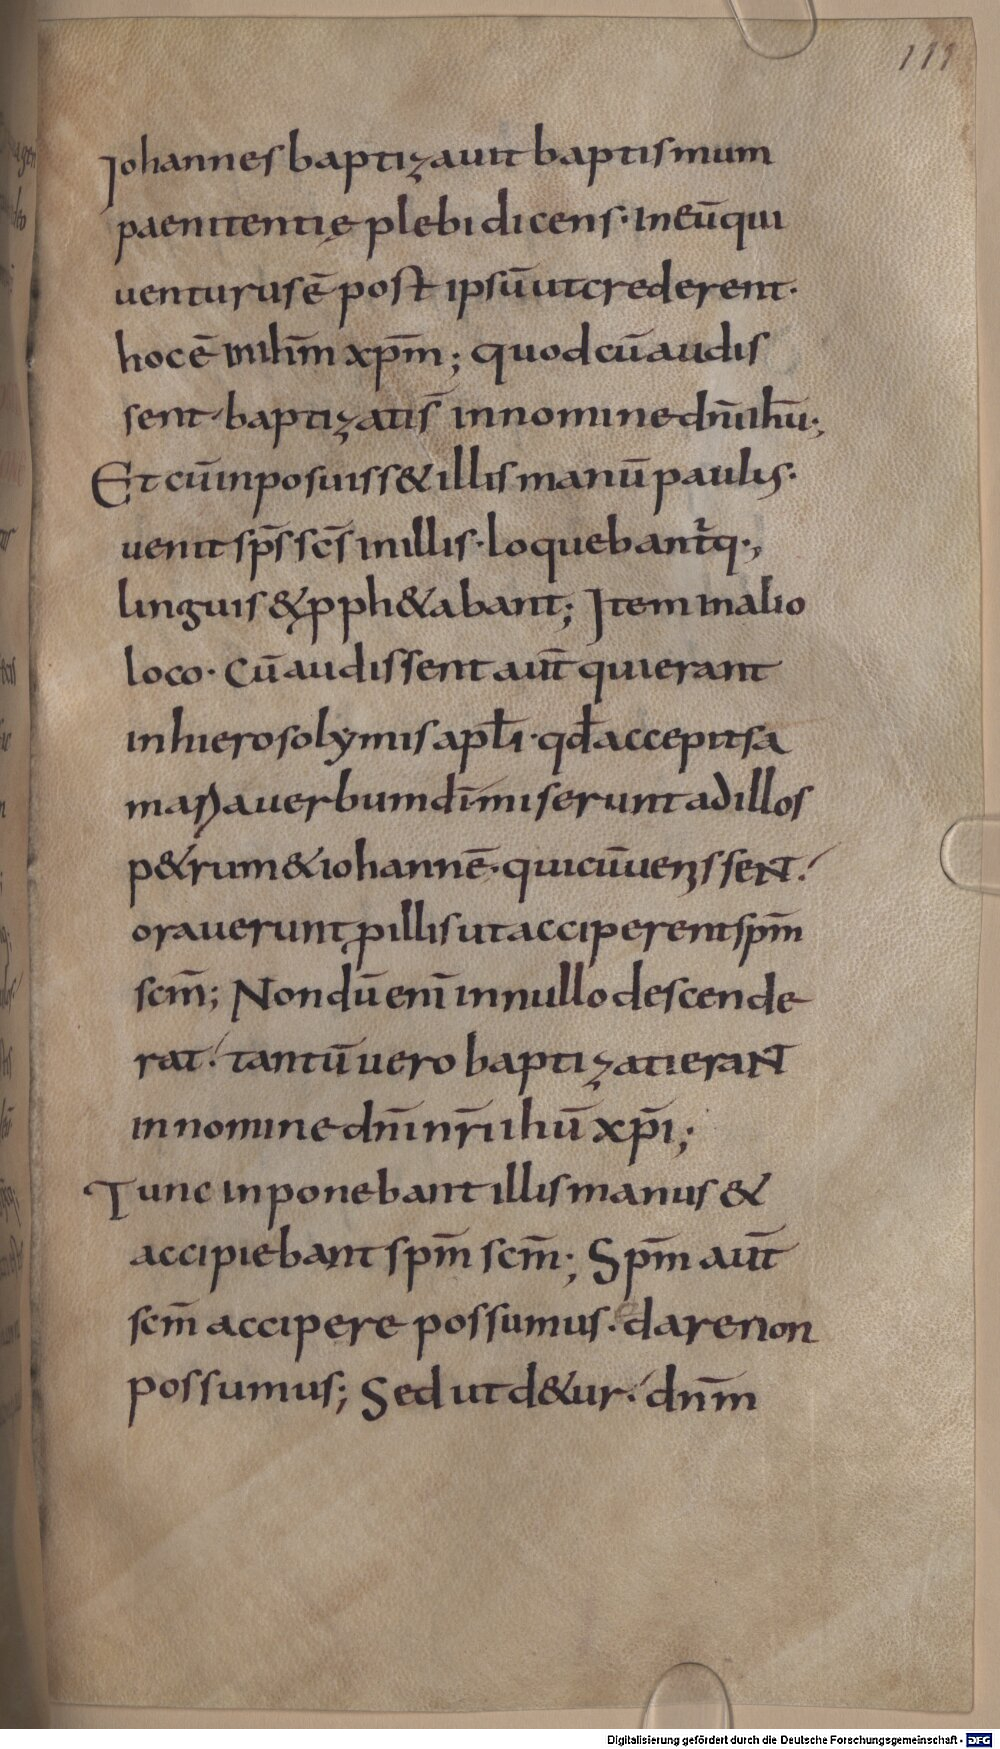 111
Iohannes baptizauit baptismum
paenitentię plebi dicens· In eū qui
uenturus ē post ipsū ut crederent·
hoc ē in ihm̄ xpm̄; quod cū audis
sent· baptizati s̄ in nomine dn̄i ihū;
Et cū inposuiss& illis manū paulus·
uenit sp̄s sc̄s in illis· loquebant̄q·,
linguis & pph&abant; Item in alio
loco· Cū audissent aut̄ qui erant
in hierosolymis apłi· qđ accepit sa
maria uerbum dī miserunt ad illos
p&rum & iohannē· qui cū uenissent·
orauerunt ꝓ illis ut acciperent spm̄
scm̄; Nondū enī in nullo descende
rat· tantū uero baptizati erant
in nomine dn̄i nr̄i ihū xp̄i;
Tunc inponebant illis manus &
accipiebant spm̄ scm̄; Spm̄ aut̄
scm̄ accipere possumus· dare non
possumus; Sed ut d&ur· dn̄m
Digitalisierung gefördert durch die Deutsche Forschungsgemeinschaft - DFG